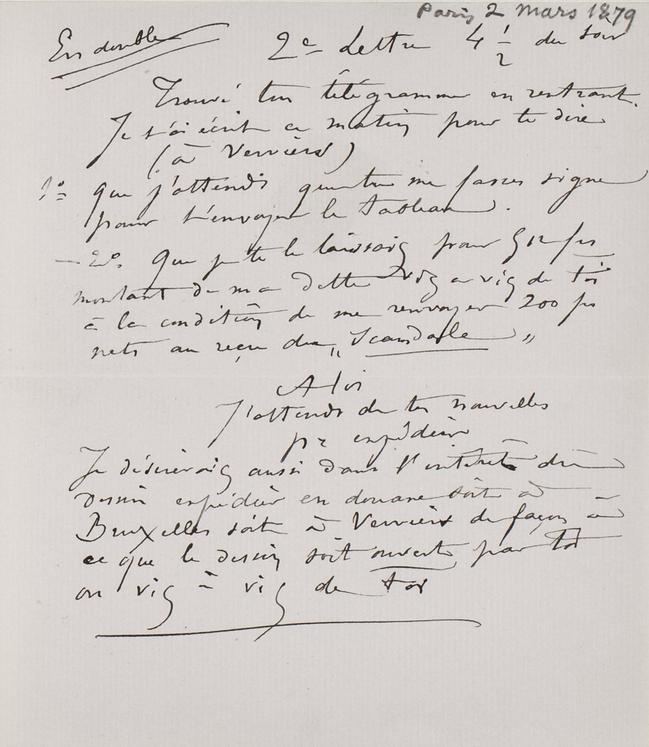 Paris 2 mars 1879
En double
2e Lettre 4 1/2 du soir
Trouvé ton télégramme en rentrant.
Je t'ai écrit ce matin pour te dire
(à Verviers)
1° que j'attends que tu me fasses signe
pour t'envoyer le tableau.
– 2° que je te le laissais pour 512 frs
montant de ma dette vis a vis de toi
à la condition de me renvoyer 200 frs
nets au reçu du „Scandale"
A toi
J'attends de tes nouvelles
pr expédier
Je désirerais aussi dans l'intérêt du
Dessin expédier en douane soit à
Bruxelles soit à Verviers de façon à
ce que le dessin soit ouvert par toi
ou vis à vis de toi